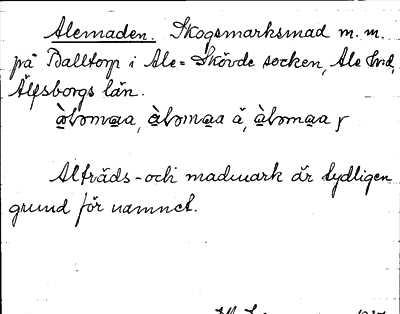 Alemaden. Skogsmarksmad m. m.
på Balltorp i Ale-Skövde socken, Ale hrd,
Älfsborgs län.
Alträds- och madmark är tydligen
grund för namnet.